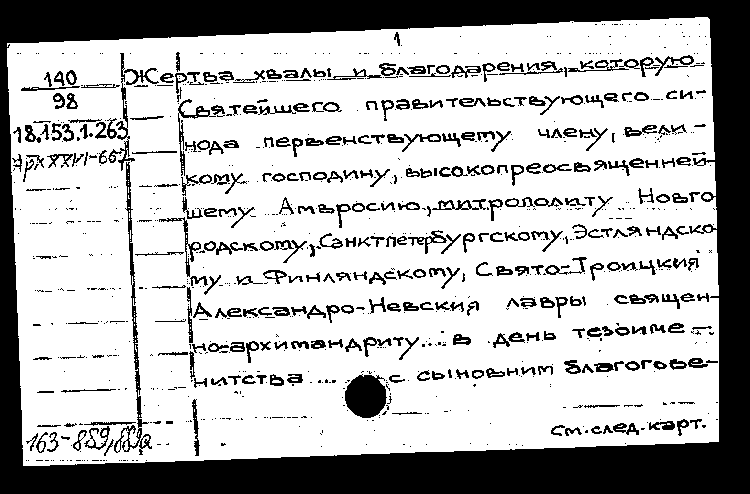 1
140 Жертва хвалы и благодарения, которую
98 Святейшего правительствующего си-
18.153.1.263 нода первенствующему члену, вели-
кому господину, высокопреосвященней-
шему Амвросию, митрополиту Новго
родскому, Санктпетербургскому, Эстляндско
му и Финляндскому, Свято-Троицкия
Александро-Невския лавры священ-
но-архимандриту... в день тезоиме-
нитства ... с сыновним благогове-
163-889,889а
См. след. карт.